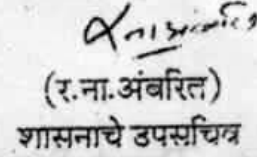 (र.ना.अंबरित)
शासनाचे उपसचिव